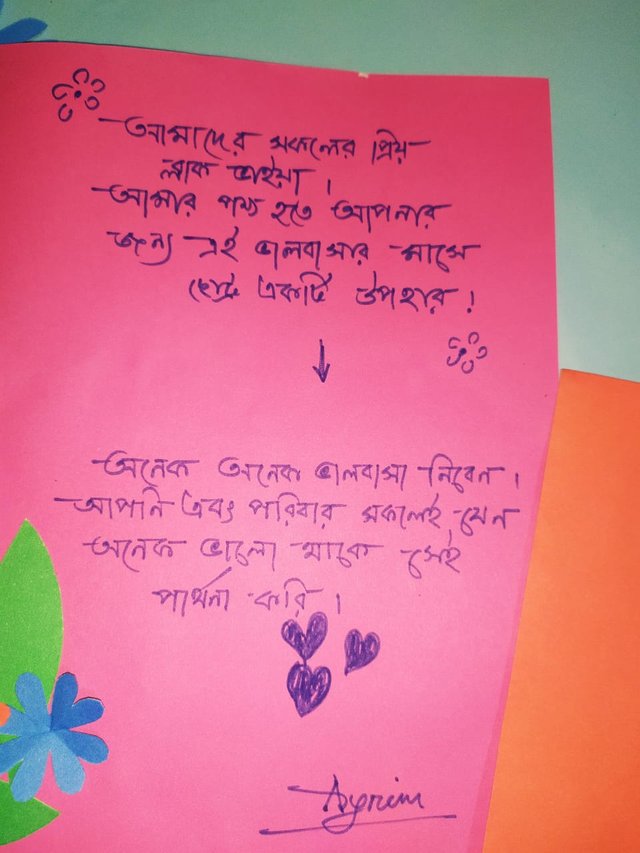 আমাদের সকলের প্রিয়
ব্লাক ভাইয়া।
আমার পক্ষ হতে আপনার
জন্য এই ভালবাসার মাসে
ছোট্ট একটি উপহার।
অনেক অনেক ভালবাসা নিবেন।
আপনি এবং পরিবার সকলেই যেন
অনেক ভালো থাকে সেই
পার্থনা করি।
Ayrin